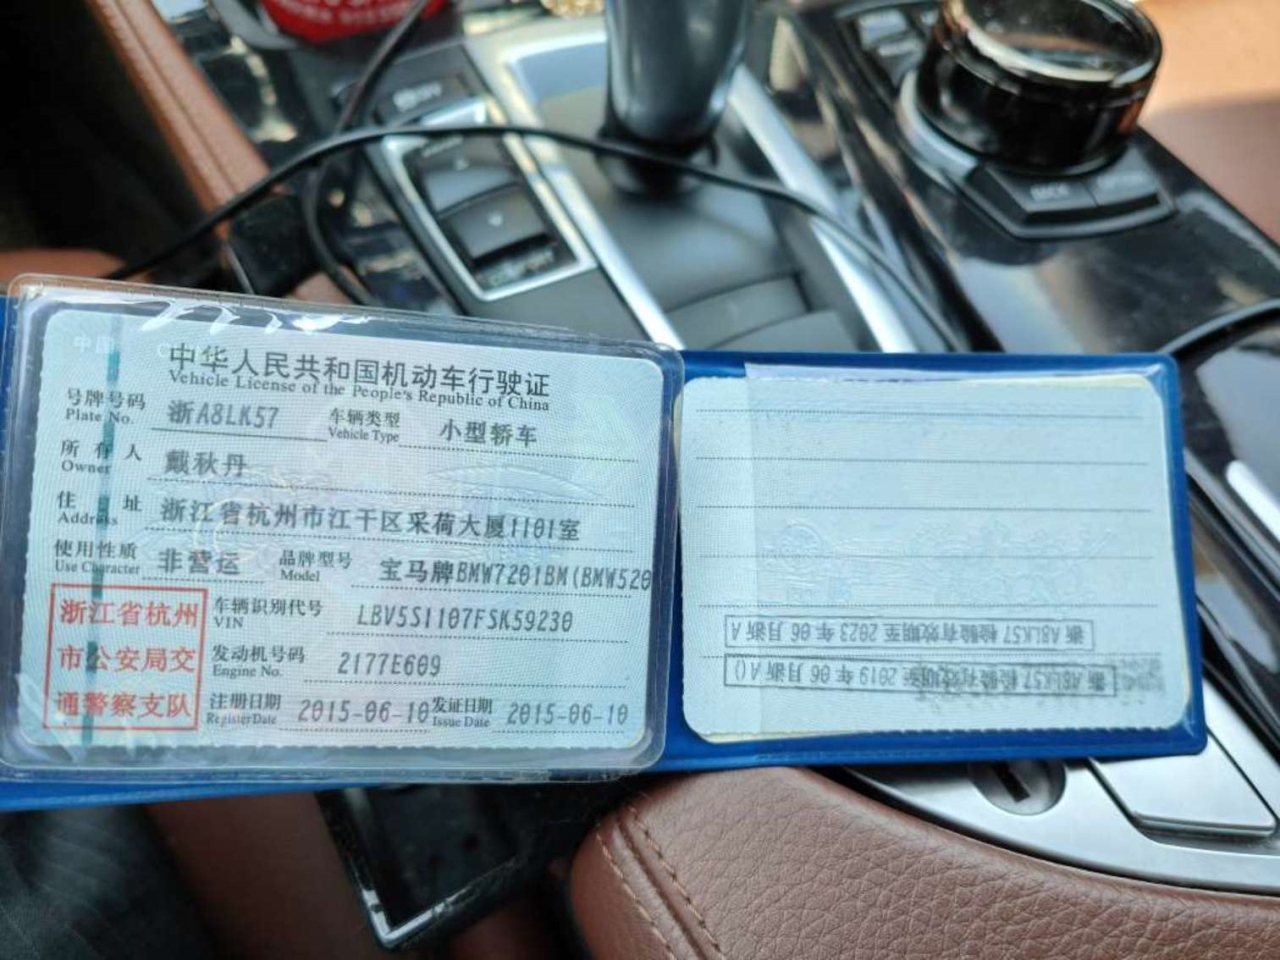 中华人民共和国机动车行驶证
Vehicle License of the People's Republic of China
号牌号码 浙A8LK57 车辆类型 小型轿车
Plate No. Vehicle Type
所有人 戴秋丹
Owner
住址 浙江省杭州市江干区采荷大厦1101室
Address
使用性质 非营运 品牌型号 宝马牌BMW7201BM(BMW520
Use Character Model
浙江省杭州
市公安局交
通警察支队
车辆识别代号 LBV5S1107FSK59230
VIN
发动机号码 2177E609
Engine No.
注册日期 2015-06-10 发证日期 2015-06-10
Register Date Issue Date
浙A8LK57 检验有效期至 2023 年 06 月浙 A
浙A8LK57 检验有效期至 2019 年 06 月浙 A()